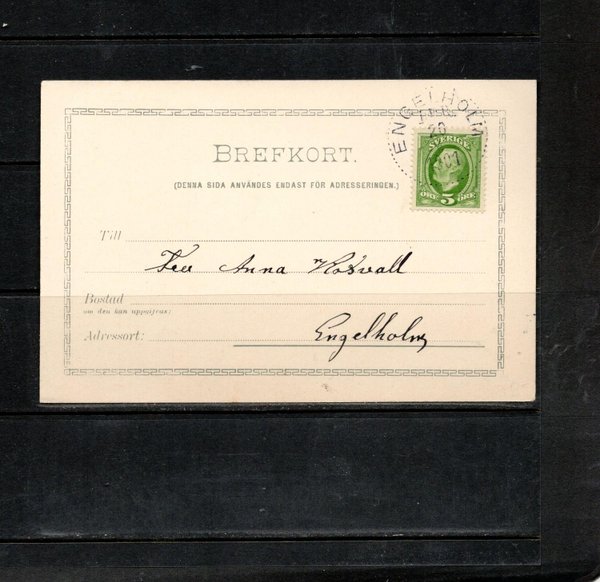 ENGELHOLM
20
SVERIGE
ÖRE 5 ÖRE
BREFKORT.
(DENNA SIDA ANVÄNDES ENDAST FÖR ADRESSERINGEN.)
Till
Anna Rosvall
Bostad
om den kan uppgifvas:
Adressort: Engelholm